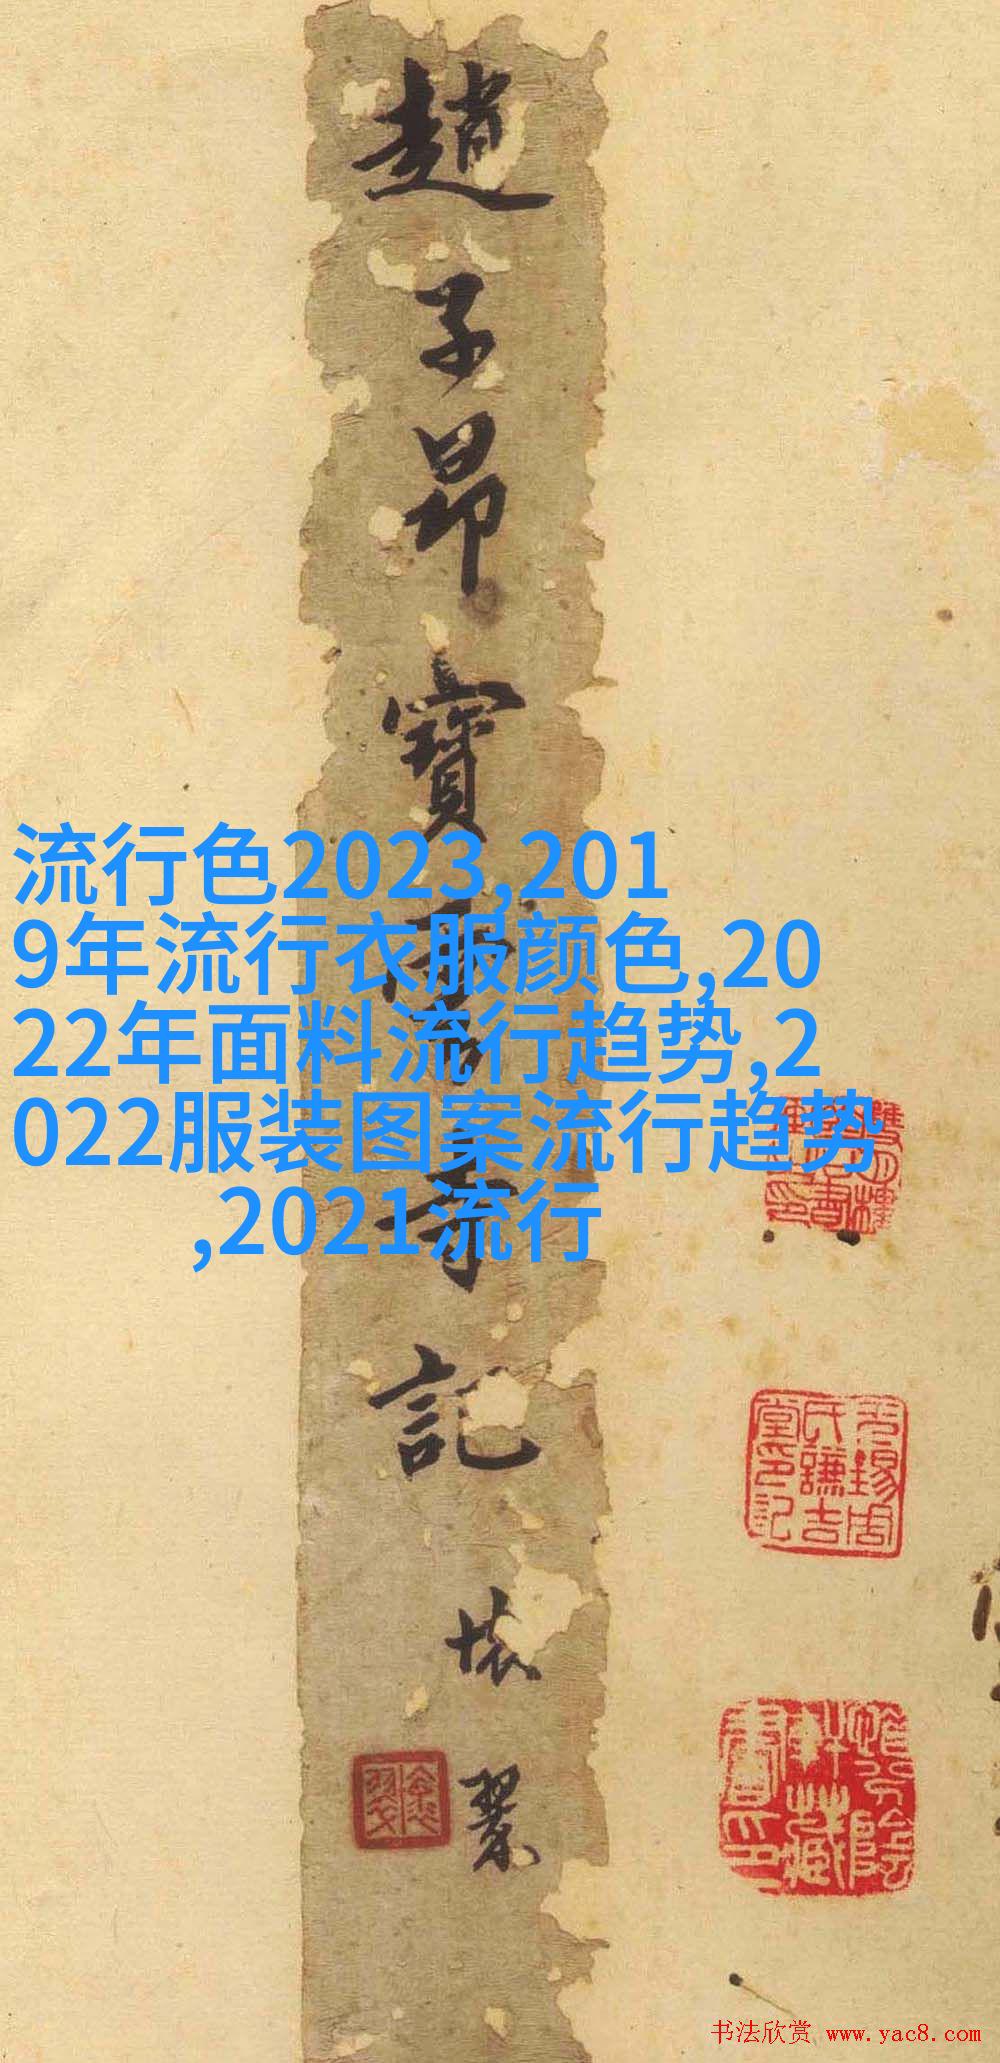 趙子昂寶雲寺記
流行色2023,201
9年流行衣服颜色,20
22年面料流行趋势,2
022服装图案流行趋势
,2021流行
无锡周
氏謙吉
堂印記
书法欣赏 www.yac8.com